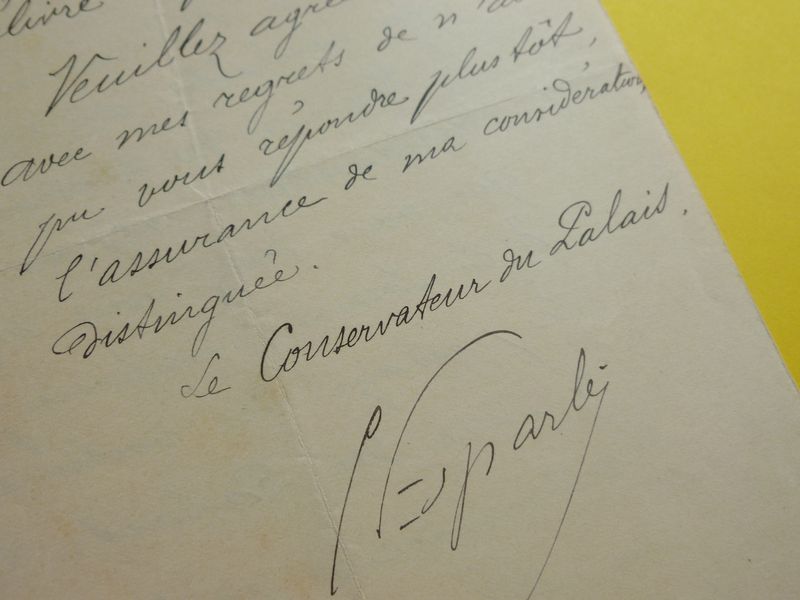 livre
Veuillez agré
avec mes regrets de n'a
pu vous répondre plus tôt,
l'assurance de ma considération,
distinguée.
Le Conservateur du Palais.